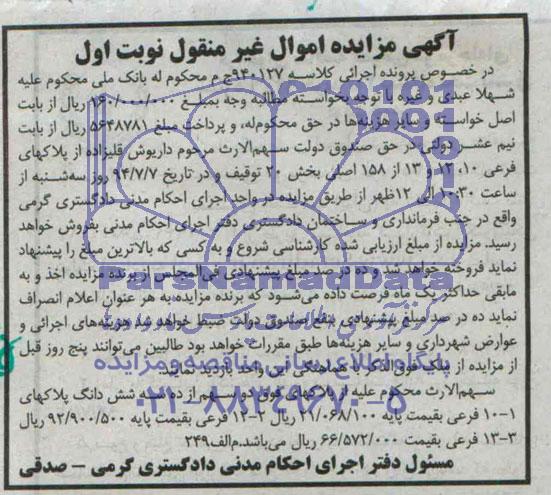 آگهی مزایده اموال غیر منقول نوبت اول
در خصوص پرونده اجرائی کلاسه ۹۴۰۱۲۷ج م محکوم له بانک ملی محکوم علیه
شهلا عبدی و غیره با توجه بخواسته مطالبه وجه بمبلغ ۱۶۰/۰۰۰/۰۰۰ ریال از بابت
اصل خواسته و سایر هزینه‌ها در حق محکوم‌له، و پرداخت مبلغ ۵۶۴۸۷۸۱ ریال از بابت
نیم عشر دولتی در حق صندوق دولت سهم‌الارث مرحوم داریوش قلیزاده از پلاکهای
فرعی ۱۰، ۱۲ و ۱۳ از ۱۵۸ اصلی بخش ۲۰ توقیف و در تاریخ ۹۴/۷/۷ روز سه‌شنبه از
ساعت ۱۰:۳۰ الی ۱۲ظهر از طریق مزایده در واحد اجرای احکام مدنی دادگستری گرمی
واقع در جنب فرمانداری و ساختمان دادگستری دفتر اجرای احکام مدنی بفروش خواهد
رسید. مزایده از مبلغ ارزیابی شده کارشناسی شروع و به کسی که بالاترین مبلغ را پیشنهاد
نماید فروخته خواهد شد و ده در صد مبلغ پیشنهادی فی‌المجلس از برنده مزایده اخذ و به
مابقی حداکثر یک ماه فرصت داده می‌شود که برنده مزایده به هر عنوان اعلام انصراف
نماید ده در صد مبلغ پیشنهادی بنفع صندوق دولت ضبط خواهد شد هزینه‌های اجرائی و
عوارض شهرداری و سایر هزینه‌ها طبق مقررات خواهد بود طالبین می‌توانند پنج روز قبل
از مزایده از پلاک فوق‌الذکر با هماهنگی این واحد بازدید نمایند.
سهم‌الارث محکوم علیه از پلاکهای فوق دو سهم از ده سهم شش دانگ پلاکهای
۱-۱۰ فرعی بقیمت پایه ۲۱/۰۶۸/۱۰۰ ریال ۲-۱۲ فرعی بقیمت پایه ۹۲/۹۰۰/۵۰۰ ریال
۳-۱۳ فرعی بقیمت ۶۶/۵۷۲/۰۰۰ ریال می‌باشد.م‌الف۲۴۹
مسئول دفتر اجرای احکام مدنی دادگستری گرمی – صدقی
ParsNamadData
پایگاه اطلاع رسانی مناقصه و مزایده
۰۲۱-۸۸۳۴۹۶۷۰-۵